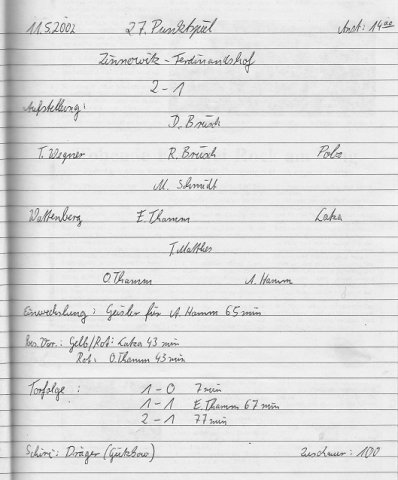 11.5.2002 27. Punktspiel Anst.: 14 00
Zinnowitz - Ferdinandshof
2 - 1
Aufstellung:
D. Brüsch
T. Wegner R. Brüsch Pobs
M. Schmidt
Wattenberg E. Thamm Latza
T. Matthes
O. Thamm A. Hamm
Einwechslung: Geisler für A. Hamm 65 min
Bes. Vor.: Gelb/Rot: Latza 43 min
Rot: O. Thamm 43 min
Torfolge: 1 - 0 7 min
1 - 1 E. Thamm 67 min
2 - 1 77 min
Schiri: Dräger (Gützkow) Zuschauer: 100